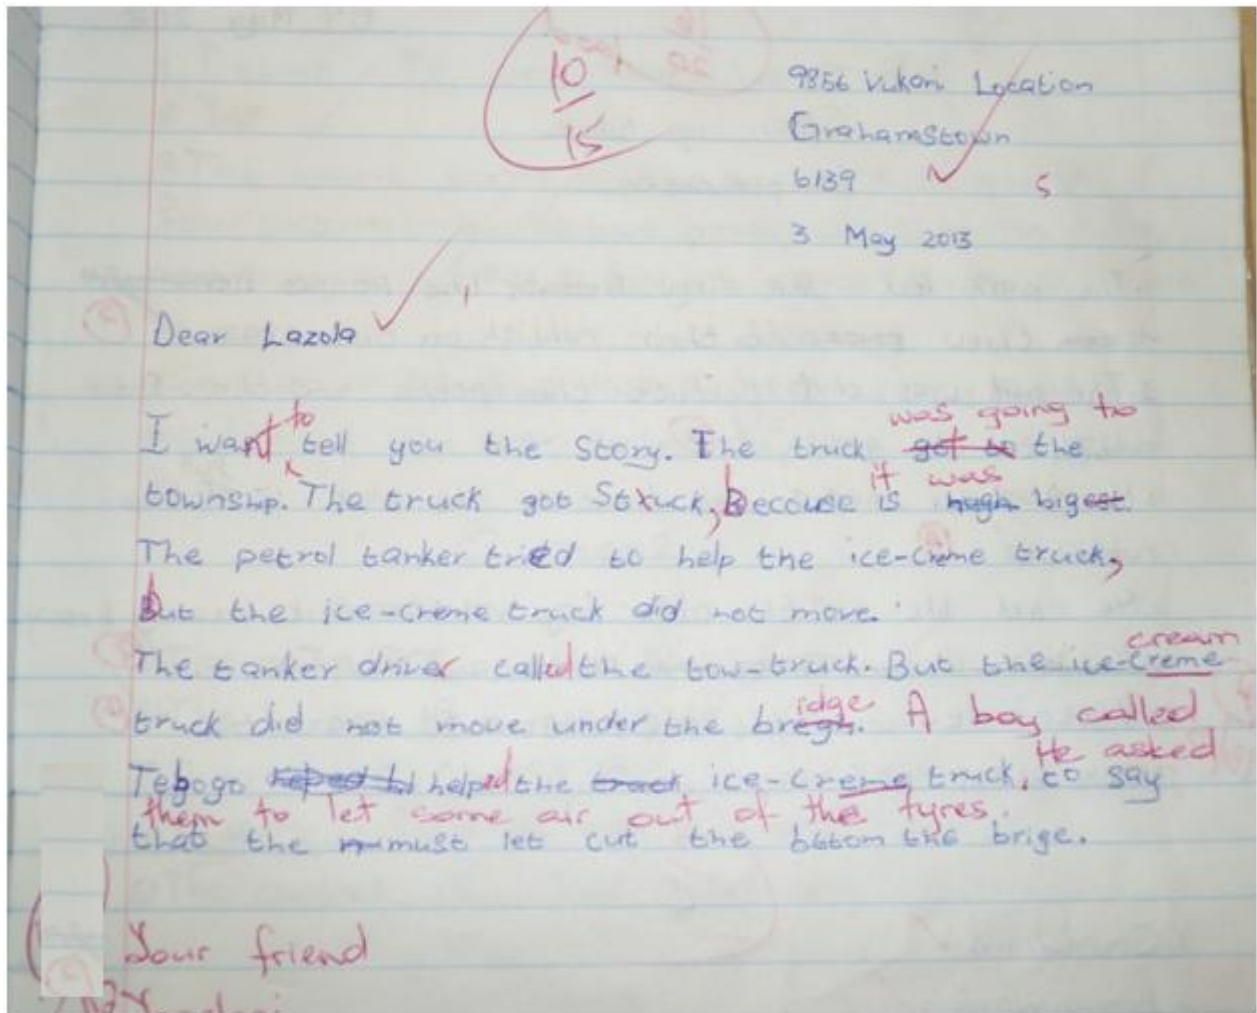 10
15
9856 Vukani Location
Grahamstown
6139
5
3 May 2013
Dear Lazola
to
was going to
I want tell you the Story. The truck got to the
it was
township. The truck got Struck, because is hugh bigest.
The petrol tanker tried to help the ice-creme truck,
but the ice-creme truck did not move.
cream
The tanker driver called the tow-truck. But the ice-creme
idge A boy called
truck did not move under the bregh.
He asked
Tebogo helped the truck ice-creme truck. to say
them to let some air out of the tyres.
that the must let cut the bttom the brige.
Your friend